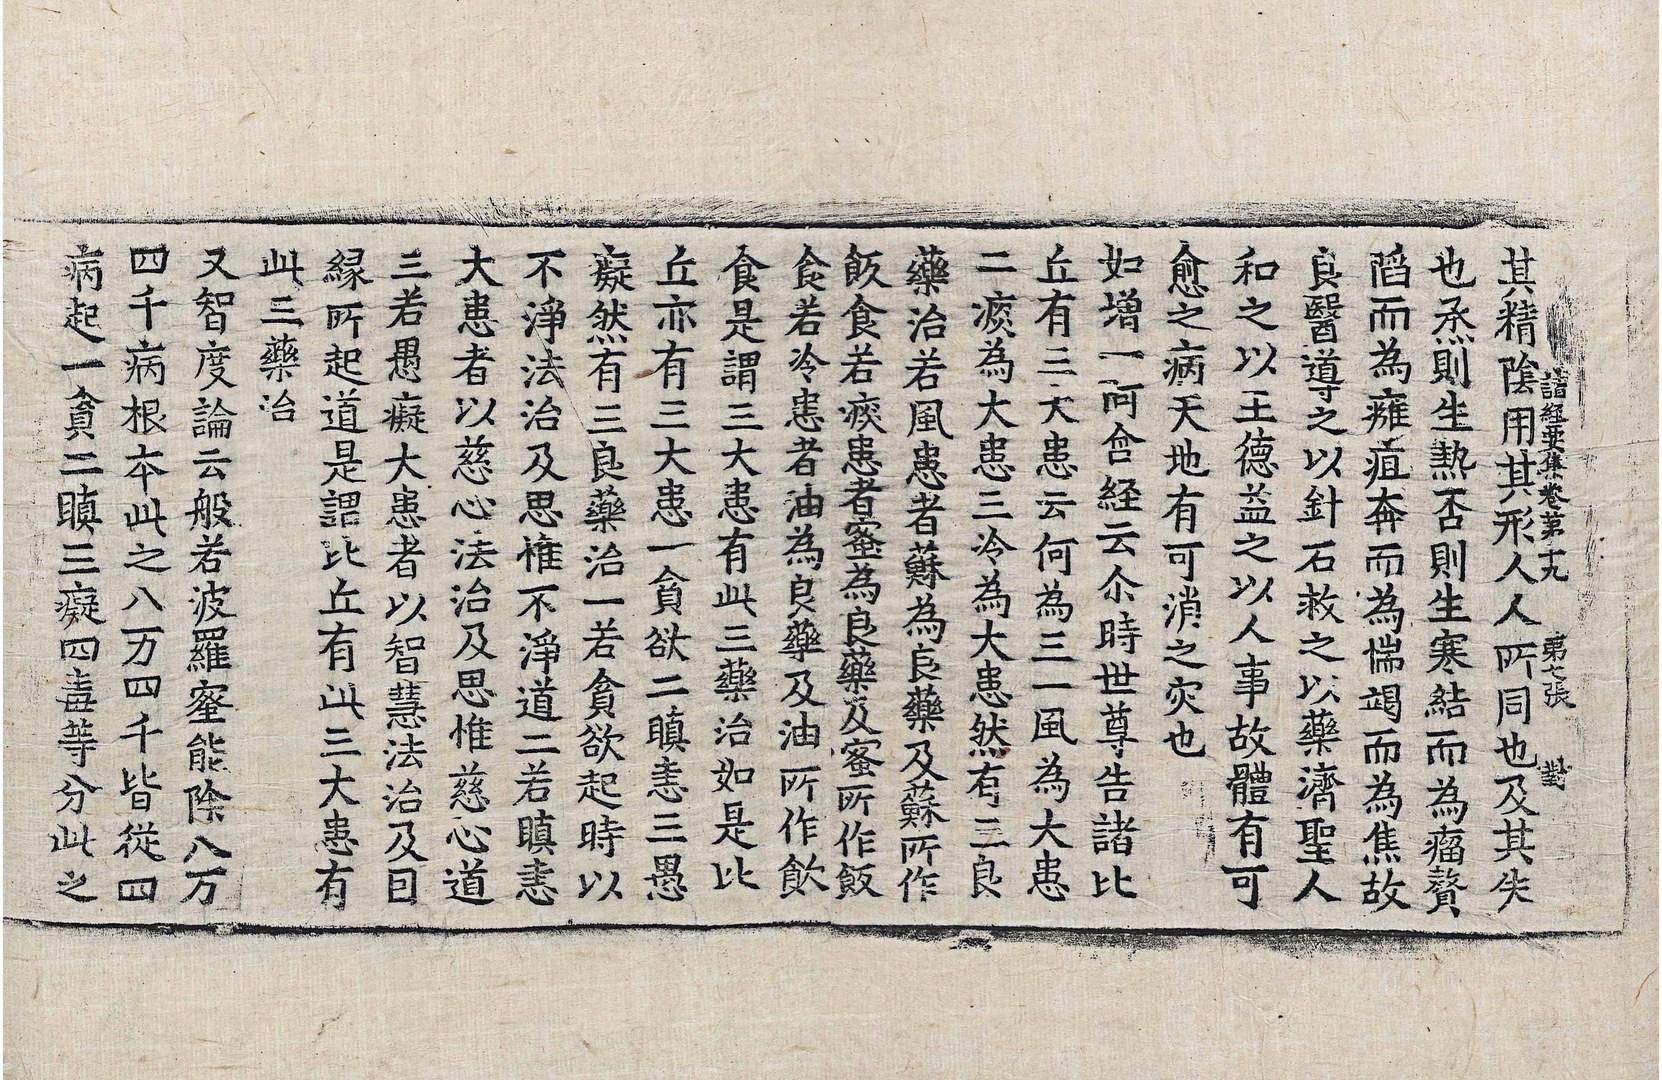 諸經要集卷第十九 第七張 對
其精陰用其形人人所同也及其失
也烝則生熱否則生寒結而為瘤贅
陷而為癰疽奔而為惴竭而為焦故
良醫導之以針石救之以藥濟聖人
和之以王德益之以人事故體有可
愈之病天地有可消之灾也
如增一阿含経云尒時世尊告諸比
丘有三大患云何為三一風為大患
二痰為大患三冷為大患然有三良
藥治若風患者蘇為良藥及蘇所作
飯食若痰患者蜜為良藥及蜜所作飯
食若冷患者油為良藥及油所作飲
食是謂三大患有此三藥治如是比
丘亦有三大患一貪欲二瞋恚三愚
癡然有三良藥治一若貪欲起時以
不淨法治及思惟不淨道二若瞋恚
大患者以慈心法治及思惟慈心道
三若愚癡大患者以智慧法治及曰
緣所起道是謂比丘有此三大患有
此三藥治
又智度論云般若波羅蜜能除八万
四千病根本此之八万四千皆從四
病起一貪二瞋三癡四毒等分此之